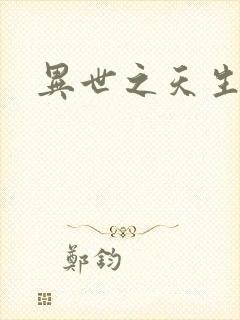 異世之天生
鄭鈞